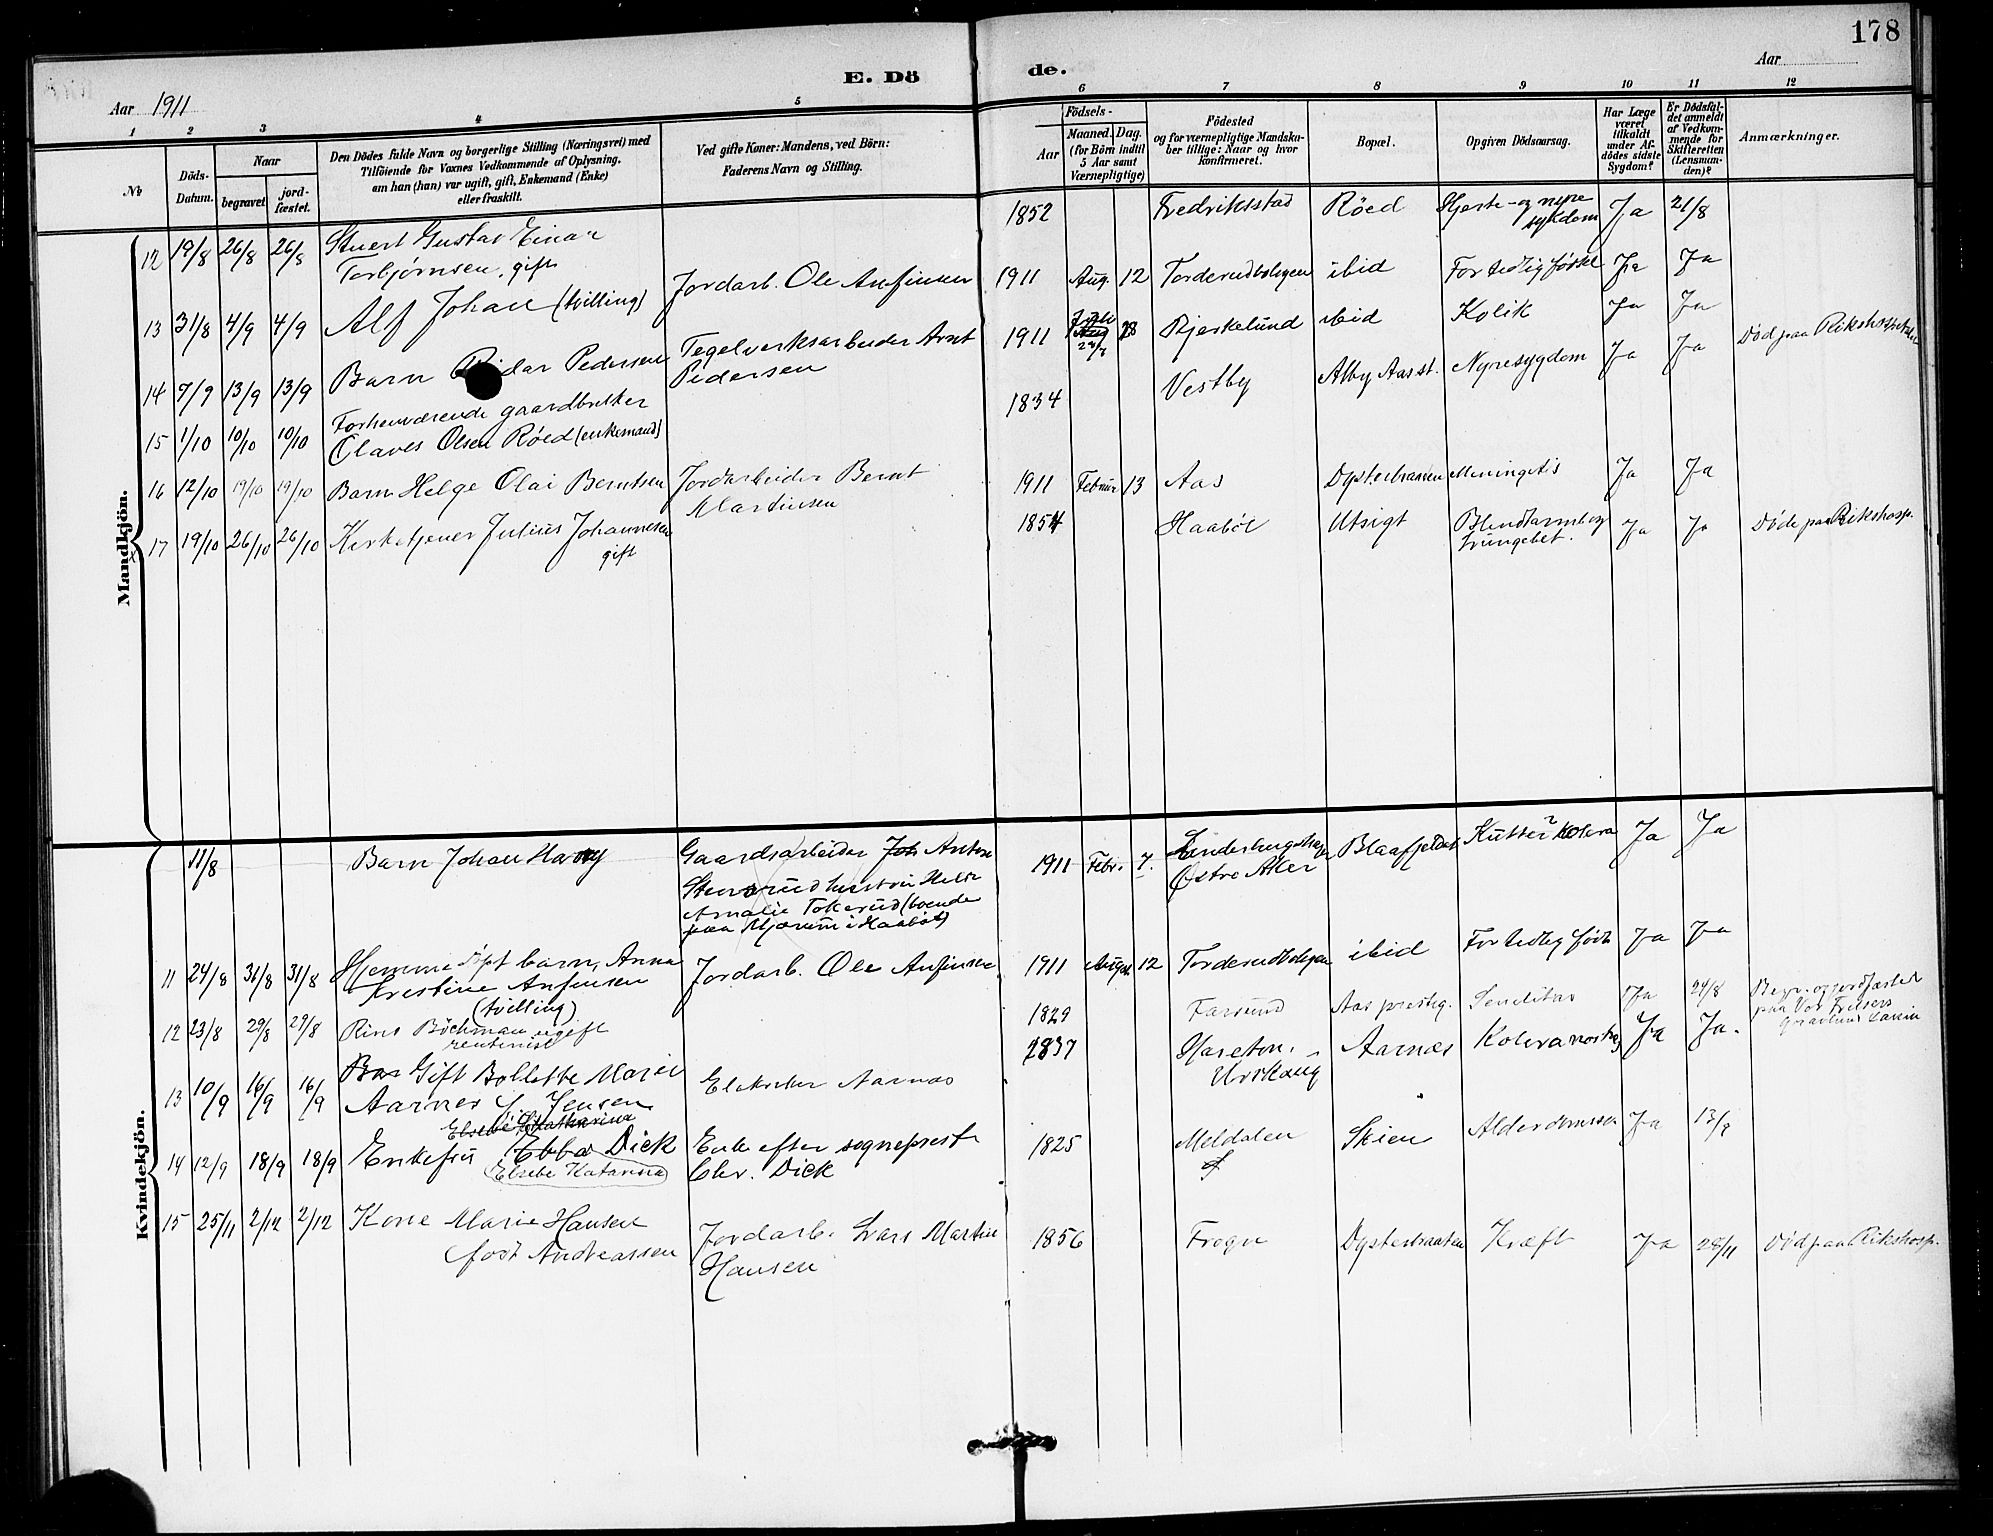 178
E. Dö
de.
Aar
Aar 1911
1 2 3 4 5 6 7 8 9 10 11 12
No
Döds-
Datum.
Naar
begravet
jord-
fæstet.
Den Dödes fulde Navn og borgerlige Stilling (Næringsvei) med
Tilföiende for Voxnes Vedkommende af Oplysning,
om han (hun) var ugift, gift, Enkemand (Enke)
eller fraskilt.
Ved gifte Koner: Mandens, ved Börn:
Faderens Navn og Stilling.
Födsels-
Aar
Maaned. Dag.
(for Börn indtil
5 Aar samt
Værnepligtige)
Födested
og for værnepligtige Mandska-
ber tillige: Naar og hvor
konfirmeret.
Bopæl.
Opgiven Dödsaarsag.
Har Læge
været
tilkaldt
under Af-
dödes sidste
Sygdom?
Er Dödsfal-
det anmeldt
af Vedkom-
mende for
Skifteretten
(Lensman-
den)?
Anmærkninger.
Mandkjön.
12 19/8 26/8 26/8 Gustav Einar
Torbjørnsen, gift
1852 Fredriksstad Røed Hjerte- og nyre
sykdom Ja 21/8
13 31/8 4/9 4/9 Alf Johan (tvilling)
Jordarb. Ole Anfinsen
1911 Aug. 12 Torderudbolegen ibid For tidlig født Ja Ja
14 7/9 13/9 13/9 Barn Pedersen
Tegelverksarbeider Arnt
Pedersen
1911 Juli Aug 28
28/7 Bjerkelund ibid Kolik Ja Ja
15 1/10 10/10 10/10 Forhenværende gaardbruker
Olaves Olsen Røed (enkemand)
1834 Vestby Alby Aas st. Nyresygdom Ja Ja Død paa Rikshospitalet
16 12/10 19/10 19/10 Barn Helge Olai Berntsen
Jordarbeider Bernt
Martinsen
1911 Februar 13 Aas Dysterbraaten Meningitis Ja Ja
17 19/10 26/10 26/10 Kirketjener Julius Johannesen
gift
1854 Haabøl Utsigt Blindtarmb. og
lungebet. Ja Ja Døde paa Rikshosp.
Kvindekjön.
11/8 Barn Johan Harry
Gaardsarbeider Joh Anton
Stensrud hustru Helle
Amalie Tokerud (boende
paa Mjærum i Haabøl)
1911 Febr. 7.
Østre Aker Blaafjeldet ? Kolera Ja Ja
11 24/8 31/8 31/8 Hjemmedøpt barn, Anna
Kristine Anfinsen
(tvilling)
Jordarb. Ole Anfinsen
1911 August 12 Torderudbolegen ibid For tidlig født Ja Ja
12 23/8 29/8 29/8 Böchman ugift
rentenist
1829 Farsund Aas presteg. Senilitas Ja 24/8 Begr. og jordfæstet
paa Vor Frelsers
Gravlund
13 10/9 16/9 16/9 Gift Bollette Marie
Aarnes f. Jensen
Aarnas
1837
Urskaug Aarnes Kolera nostras Ja Ja.
14 12/9 18/9 18/9 Elsebe Katharina
Enkefru Ebba Dick
(Elsebe Katarina)
Enke efter sogneprest
Chr. Dick
1825 Meldalen Skien Alderdomssv. Ja 13/9
15 25/11 2/12 2/12 Kone Marie Hansen
født Andreassen
Jordarb. Lars Martin
Hansen
1856 Frogn Dysterbraaten Kræft Ja 28/11 Død paa Rikshosp.